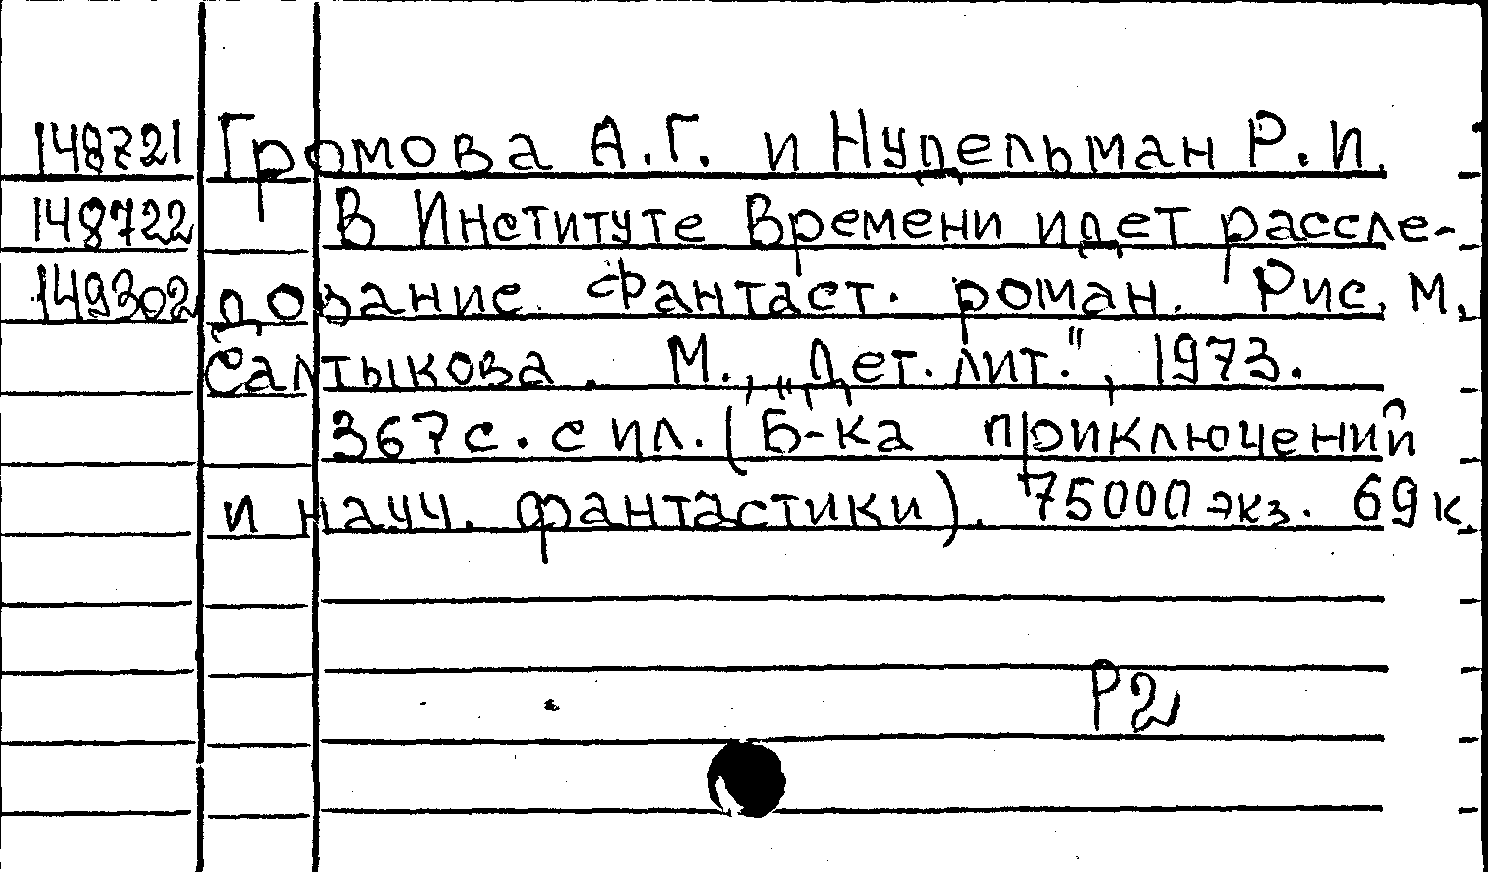 148721 Громова А.Г. и Нудельман Р.И.
148722 В Институте Времени идет рассле-
149302 дование. Фантаст. роман. Рис. М.
Салтыкова. М., „Дет. лит.", 1973.
367 с. с ил. (Б-ка приключений
и науч. фантастики). 75000 экз. 69 к.
Р2